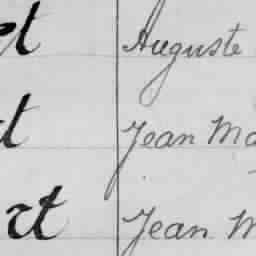 et Auguste
t Jean Ma
rt Jean M